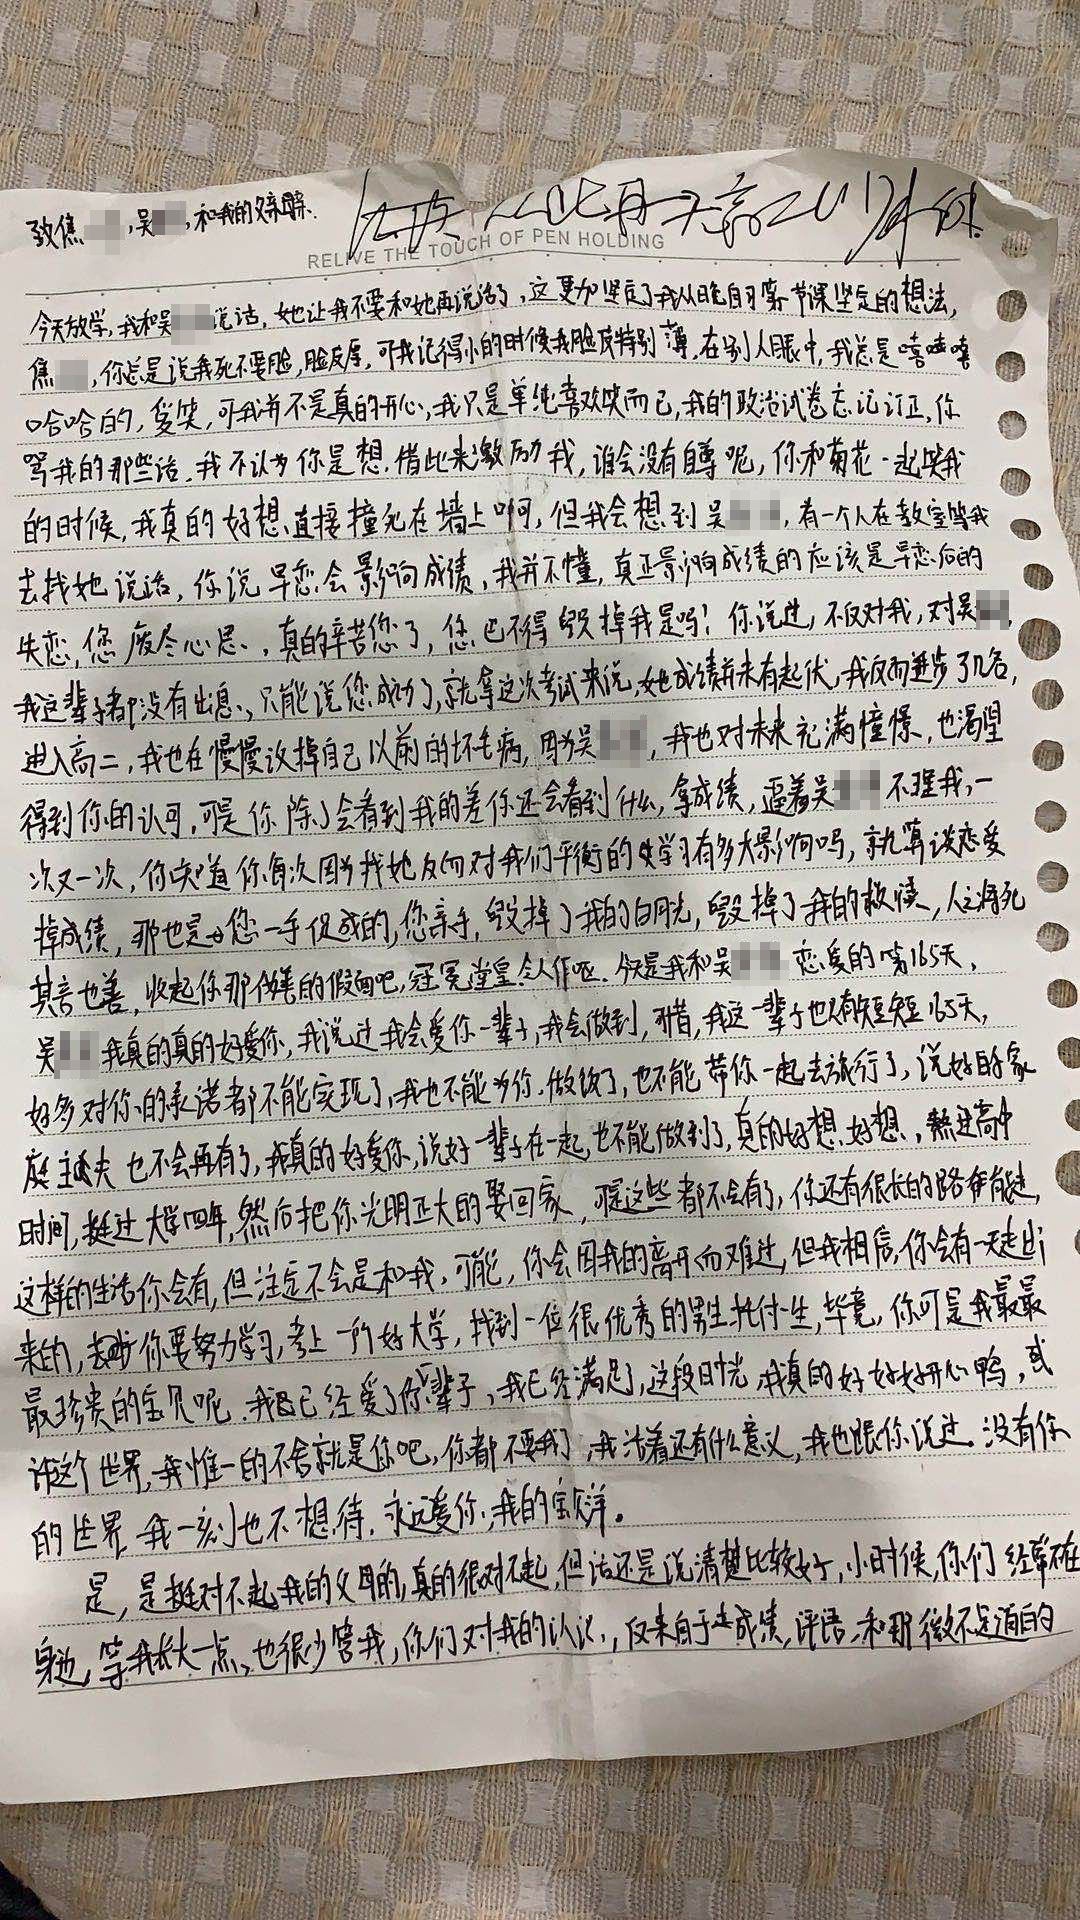 致焦，吴，和我的父亲母亲.
RELIVE THE TOUCH OF PEN HOLDING
今天放学，我和吴说话，她让我不要和她再说话了，这更加坚定了我从晚自习第一节课坚定的想法，
焦，你总是说我死不要脸，脸皮厚，可我记得小的时候我脸皮特别薄，在别人眼中，我总是嘻嘻嘻
哈哈哈的，爱笑，可我并不是真的开心，我只是单纯喜欢笑而已，我的政治试卷忘记订正，你
骂我的那些话，我不认为你是想借此来激励我，谁会没有自尊呢，你和菊花一起笑我
的时候，我真的好想直接撞死在墙上啊，但我会想到吴，有一个人在教室等我
去找她说话，你说早恋会影响成绩，我并不懂，真正影响成绩的应该是早恋后的
失恋，您废尽心思，真的辛苦您了，您巴不得毁掉我是吗！你说过，不仅对我，对吴，
我这辈子都没有出息，只能说您成功了，就拿这次考试来说，她成绩并未有起伏，我反而进步了几名，
进入高二，我也在慢慢改掉自己以前的坏毛病，因为吴，我也对未来充满憧憬，也渴望
得到你的认可，可是你除了会看到我的差你还会看到什么，拿成绩，逼着吴不理我，一
次又一次，你知道你每次因为找她反而对我们平衡的学习有多大影响吗，就算谈恋爱
掉成绩，那也是您一手促成的，您亲手毁掉了我的白月光，毁掉了我的救赎，人之将死
其言也善，收起你那伪善的假面吧，冠冕堂皇，令人作呕．今天是我和吴恋爱的第165天，
吴我真的真的好爱你，我说过我会爱你一辈子，我会做到，可惜，我这一辈子也只有短短165天，
好多对你的承诺都不能实现了，我也不能为你做饭了，也不能带你一起去旅行了，说好的家
庭主夫也不会再有了，我真的好爱你，说好一辈子在一起，也不能做到了，真的好想，好想，熬过高中
时间，挺过大学四年，然后把你光明正大的娶回家，可是这些都不会有了，你还有很长的路要走，
这样的生活你会有，但注定不会是和我，可能，你会因我的离开而难过，但我相信，你会有一天走出
来的，你要努力学习，考上一所好大学，找到一位很优秀的男生托付一生，毕竟，你可是我最最
最珍贵的宝贝呢．我已经爱了你一辈子，我已经满足了，这段时光，我真的好好好开心鸭，或
许这个世界，我惟一的不舍就是你吧，你都不要我了，我活着还有什么意义，我也跟你说过．没有你
的世界，我一刻也不想待．永远爱你，我的宝．
是，是挺对不起我的父母的，真的很对不起，但话还是说清楚比较好，小时候，你们经常不在
身边，等我长大一点，也很少管我，你们对我的认识，仅来自于成绩，评语，和那微不足道的